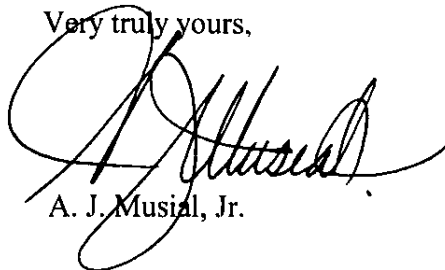 Very truly yours,
A. J. Musial
A. J. Musial, Jr.